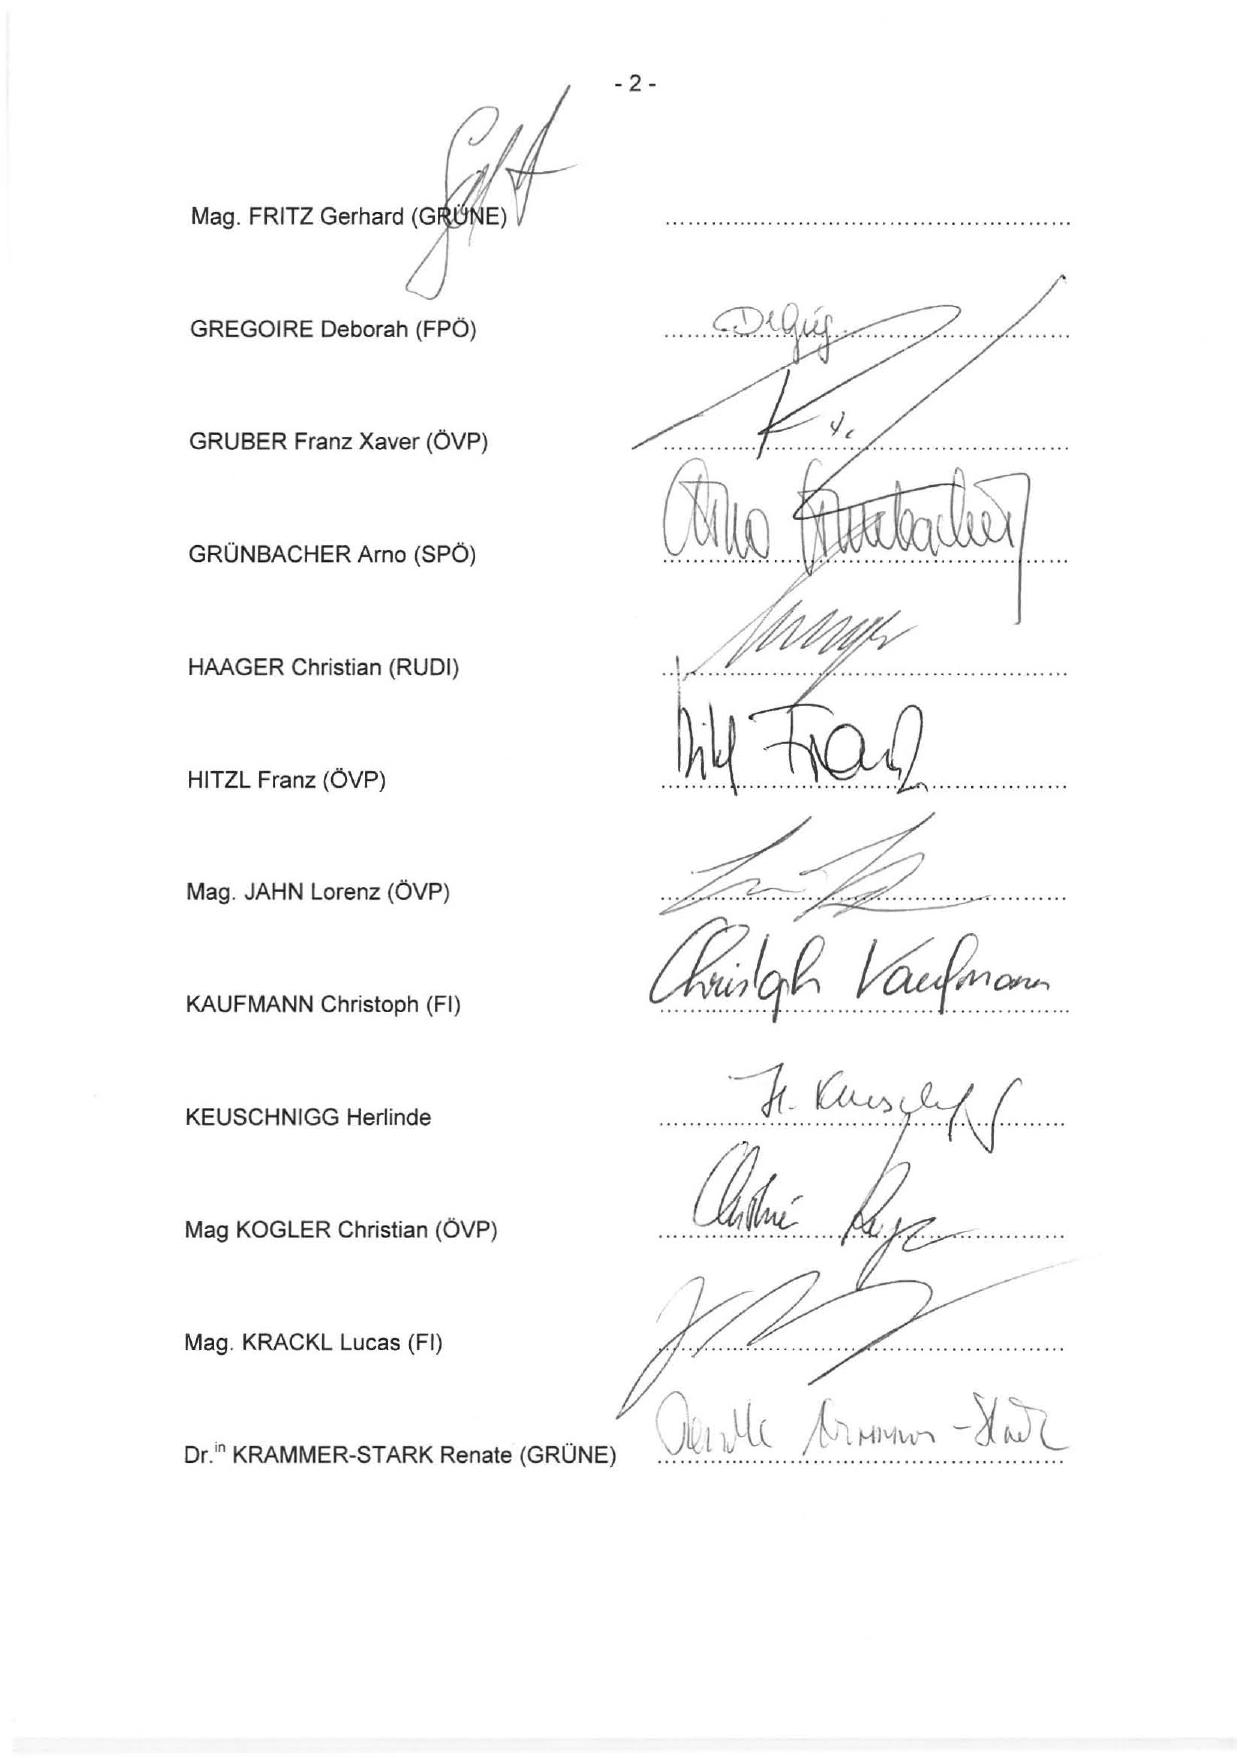 - 2 -
Mag. FRITZ Gerhard (GRÜNE)
GREGOIRE Deborah (FPÖ)
GRUBER Franz Xaver (ÖVP)
GRÜNBACHER Arno (SPÖ) Arno Grünbacher
HAAGER Christian (RUDI)
HITZL Franz (ÖVP) Hitzl Franz
Mag. JAHN Lorenz (ÖVP)
KAUFMANN Christoph (FI) Christoph Kaufmann
KEUSCHNIGG Herlinde H. Keuschnigg
Mag KOGLER Christian (ÖVP) Christian
Mag. KRACKL Lucas (FI)
Dr.in KRAMMER-STARK Renate (GRÜNE) Renate Krammer-Stark